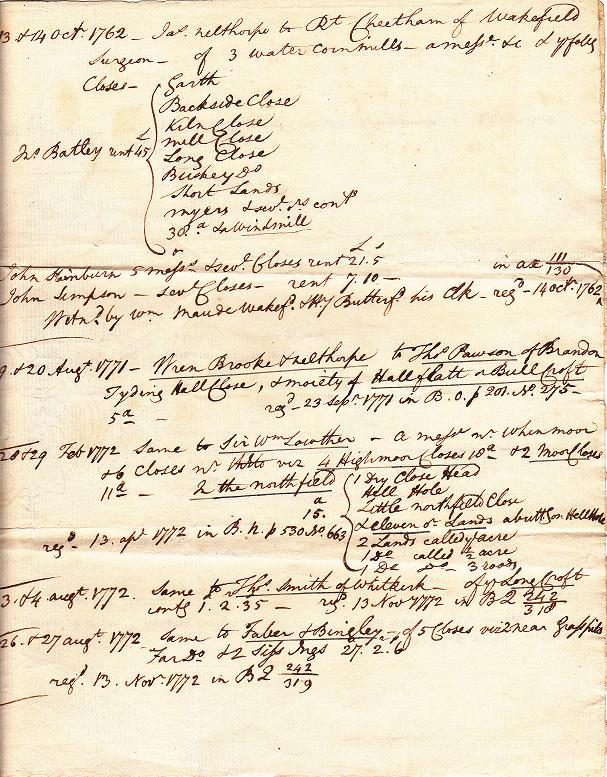 13 & 14 Oct.r 1762 – Ja.s Nelthorpe to R.t Cheetham of Wakefield
Surgeon – of 3 water Cornmills – a mess.e &c & y.e foll.g
Closes –
Garth
Backside Close
Kiln Close
Mill Close
Jn.o Batley rent £45
Long Close
Burkey D.o
Short Lands
Myers & sev.l cont.g
38 a & a Windmill
£ s
John Stainburn 5 mess.s & sev.l Closes rent 21.5
John Simpson – sev.l Closes – rent 7.10 –
in ax 111/130
Witn.d by W.m Maude Wakef.d & H.y Butterf.d his Clk – reg.d – 14 Oct.r 1762
9 & 20 Aug.t 1771 – Wren Brooke & Nelthorpe to Tho.s Pawson of Brandon
Tyding Hall Close, & moiety of Hallflatt or Bull Croft
5 a – reg.d – 23 Sep.r 1771 in B.O. p 201. N.o 275 –
28 & 29 Feb 1772 Same to Sir W.m Lowther – A mess.e n.r Whinmoor
& 6 Closes n.r viz 4 Highmoor Closes 18 a & 2 Moor Closes
11 a – In the northfield
1 Dry Close Head
Hell Hole
a
15.
Little northfield Close
& eleven or Lands abutt.g on Hell Hole
2 Lands called acre
reg.d 13. ap.l 1772 in B.N. p 530 N.o 663
1 D.o called ½ acre
1 D.o D.o – 3 roods
3. & 4 aug.t. 1772. Same to Tho.s Smith of Whitkirk – of y.e Long Croft
cont.g 1. 2. 35 – reg.d 13 Nov.r 1772 in BQ 242/318
26. & 27 aug.t 1772 Same to Faber & Bingley – of 5 Closes viz 2 near Grasspitts
Far D.o & 2 Ings 27. 2. 6
reg.d. 13. Nov.r 1772 in BQ 242/319